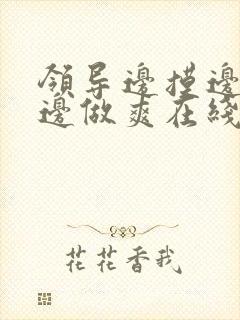 領导邊摸邊
邊做爽在綫
花花香我